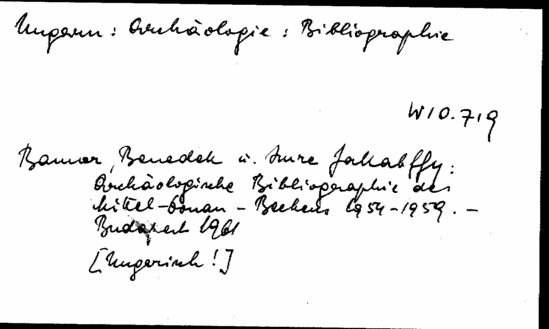 Ungarn: Archäologie: Bibliographie
W10.719
Banner, Benedek u. Imre Jakabffy:
Archäologische Bibliographie des
Mittel-Donau-Beckens 1954-1959. -
Budapest 1961
[Ungarisch!]